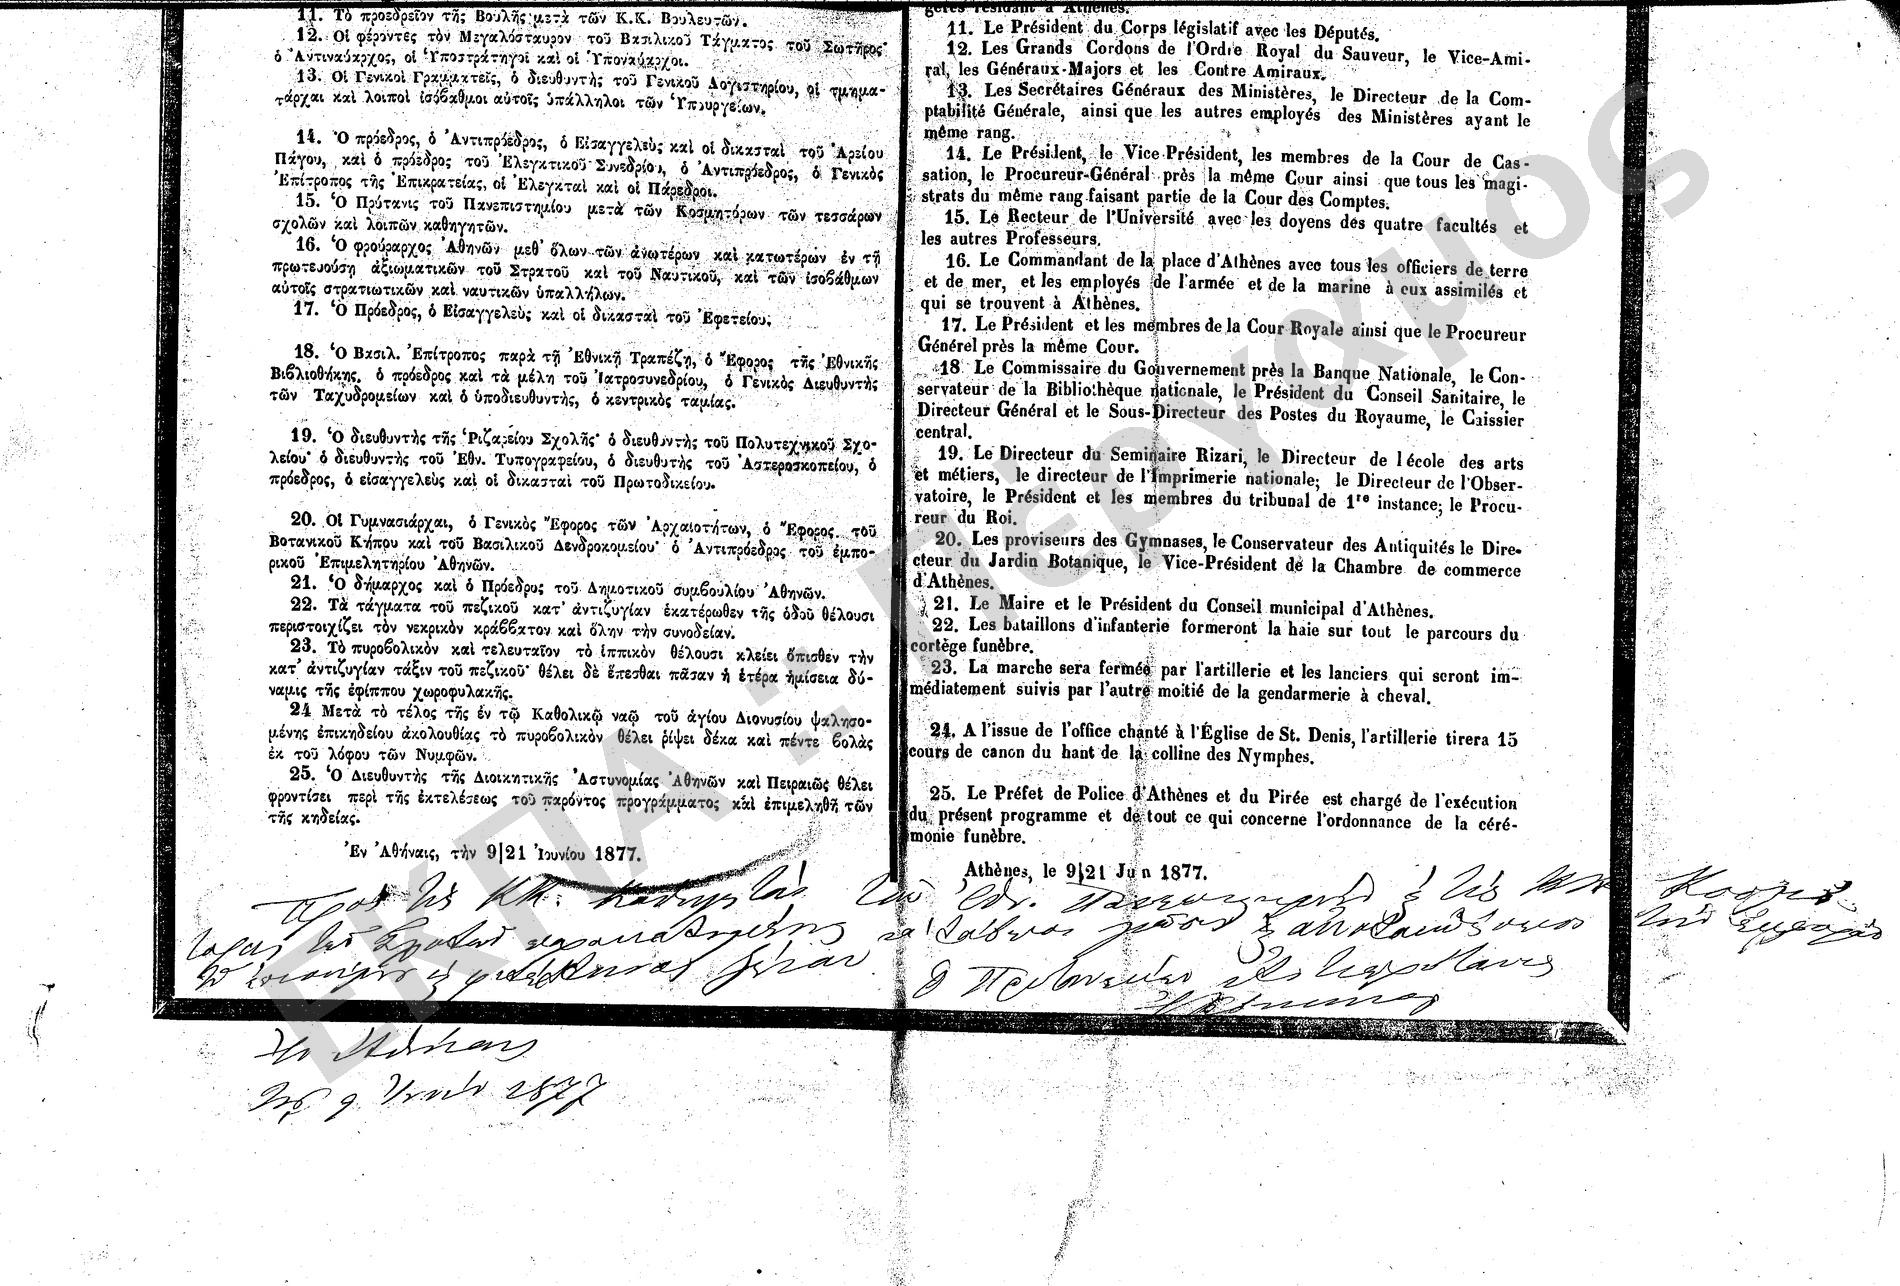 11. Τὸ προεδρεῖον τῆς Βουλῆς μετὰ τῶν Κ.Κ. Βουλευτῶν.
12. Οἱ φέροντες τὸν Μεγαλόσταυρον τοῦ Βασιλικοῦ Τάγματος τοῦ Σωτῆρος·
ὁ Ἀντιναύαρχος, οἱ Ὑποστράτηγοι καὶ οἱ Ὑποναύαρχοι.
13. Οἱ Γενικοὶ Γραμματεῖς, ὁ διευθυντὴς τοῦ Γενικοῦ Λογιστηρίου, οἱ τμημα-
τάρχαι καὶ λοιποὶ ἰσόβαθμοι αὐτοῖς ὑπάλληλοι τῶν Ὑπουργείων.
14. Ὁ πρόεδρος, ὁ Ἀντιπρόεδρος, ὁ Εἰσαγγελεὺς καὶ οἱ δικασταὶ τοῦ Ἀρείου
Πάγου, καὶ ὁ πρόεδρος τοῦ Ἐλεγκτικοῦ Συνεδρίου, ὁ Ἀντιπρόεδρος, ὁ Γενικὸς
Ἐπίτροπος τῆς Ἐπικρατείας, οἱ Ἐλεγκταὶ καὶ οἱ Πάρεδροι.
15. Ὁ Πρύτανις τοῦ Πανεπιστημίου μετὰ τῶν Κοσμητόρων τῶν τεσσάρων
σχολῶν καὶ λοιπῶν καθηγητῶν.
16. Ὁ φρούραρχος Ἀθηνῶν μεθ' ὅλων τῶν ἀνωτέρων καὶ κατωτέρων ἐν τῇ
πρωτευούσῃ ἀξιωματικῶν τοῦ Στρατοῦ καὶ τοῦ Ναυτικοῦ, καὶ τῶν ἰσοβάθμων
αὐτοῖς στρατιωτικῶν καὶ ναυτικῶν ὑπαλλήλων.
17. Ὁ Πρόεδρος, ὁ Εἰσαγγελεὺς καὶ οἱ δικασταὶ τοῦ Ἐφετείου.
18. Ὁ Βασιλ. Ἐπίτροπος παρὰ τῇ Ἐθνικῇ Τραπέζῃ, ὁ Ἔφορος τῆς Ἐθνικῆς
Βιβλιοθήκης, ὁ πρόεδρος καὶ τὰ μέλη τοῦ Ἰατροσυνεδρίου, ὁ Γενικὸς Διευθυντὴς
τῶν Ταχυδρομείων καὶ ὁ ὑποδιευθυντὴς, ὁ κεντρικὸς ταμίας.
19. Ὁ διευθυντὴς τῆς Ῥιζαρείου Σχολῆς· ὁ διευθυντὴς τοῦ Πολυτεχνικοῦ Σχο-
λείου· ὁ διευθυντὴς τοῦ Ἐθν. Τυπογραφείου, ὁ διευθυτὴς τοῦ Ἀστεροσκοπείου, ὁ
πρόεδρος, ὁ εἰσαγγελεὺς καὶ οἱ δικασταὶ τοῦ Πρωτοδικείου.
20. Οἱ Γυμνασιάρχαι, ὁ Γενικὸς Ἔφορος τῶν Ἀρχαιοτήτων, ὁ Ἔφορος τοῦ
Βοτανικοῦ Κήπου καὶ τοῦ Βασιλικοῦ Δενδροκομείου· ὁ Ἀντιπρόεδρος τοῦ ἐμπο-
ρικοῦ Ἐπιμελητηρίου Ἀθηνῶν.
21. Ὁ δήμαρχος καὶ ὁ Πρόεδρος τοῦ Δημοτικοῦ συμβουλίου Ἀθηνῶν.
22. Τὰ τάγματα τοῦ πεζικοῦ κατ' ἀντιζυγίαν ἑκατέρωθεν τῆς ὁδοῦ θέλουσι
περιστοιχίζει τὸν νεκρικὸν κράββατον καὶ ὅλην τὴν συνοδείαν.
23. Τὸ πυροβολικὸν καὶ τελευταῖον τὸ ἱππικὸν θέλουσι κλείει ὄπισθεν τὴν
κατ' ἀντιζυγίαν τάξιν τοῦ πεζικοῦ· θέλει δὲ ἕπεσθαι πᾶσαν ἡ ἑτέρα ἡμίσεια δύ-
ναμις τῆς ἐφίππου χωροφυλακῆς.
24 Μετὰ τὸ τέλος τῆς ἐν τῷ Καθολικῷ ναῷ τοῦ ἁγίου Διονυσίου ψαλησο-
μένης ἐπικηδείου ἀκολουθίας τὸ πυροβολικὸν θέλει ῥίψει δέκα καὶ πέντε βολὰς
ἐκ τοῦ λόφου τῶν Νυμφῶν.
25. Ὁ Διευθυντὴς τῆς Διοικητικῆς Ἀστυνομίας Ἀθηνῶν καὶ Πειραιῶς θέλει
φροντίσει περὶ τῆς ἐκτελέσεως τοῦ παρόντος προγράμματος καὶ ἐπιμεληθῆ τῶν
τῆς κηδείας.
Ἐν Ἀθήναις, τὴν 9|21 Ἰουνίου 1877.
gères résidant à Athènes.
11. Le Président du Corps législatif avec les Députés.
12. Les Grands Cordons de l'Ordre Royal du Sauveur, le Vice-Ami-
ral, les Généraux-Majors et les Contre Amiraux.
13. Les Secrétaires Généraux des Ministères, le Directeur de la Com-
ptabilité Générale, ainsi que les autres employés des Ministères ayant le
même rang.
14. Le Président, le Vice-Président, les membres de la Cour de Cas-
sation, le Procureur-Général près la même Cour ainsi que tous les magi-
strats du même rang faisant partie de la Cour des Comptes.
15. Le Recteur de l'Université avec les doyens des quatre facultés et
les autres Professeurs.
16. Le Commandant de la place d'Athènes avec tous les officiers de terre
et de mer, et les employés de l'armée et de la marine à eux assimilés et
qui se trouvent à Athènes.
17. Le Président et les membres de la Cour Royale ainsi que le Procureur
Générel près la même Cour.
18 Le Commissaire du Gouvernement près la Banque Nationale, le Con-
servateur de la Bibliothèque nationale, le Président du Conseil Sanitaire, le
Directeur Général et le Sous-Directeur des Postes du Royaume, le Caissier
central.
19. Le Directeur du Seminaire Rizari, le Directeur de l école des arts
et métiers, le directeur de l'Imprimerie nationale; le Directeur de l'Obser-
vatoire, le Président et les membres du tribunal de 1re instance; le Procu-
reur du Roi.
20. Les proviseurs des Gymnases, le Conservateur des Antiquités le Dire-
cteur du Jardin Botanique, le Vice-Président de la Chambre de commerce
d'Athènes.
21. Le Maire et le Président du Conseil municipal d'Athènes.
22. Les bataillons d'infanterie formeront la haie sur tout le parcours du
cortège funèbre.
23. La marche sera fermée par l'artillerie et les lanciers qui seront im-
médiatement suivis par l'autre moitié de la gendarmerie à cheval.
24. A l'issue de l'office chanté à l'Église de St. Denis, l'artillerie tirera 15
cours de canon du hant de la colline des Nymphes.
25. Le Préfet de Police d'Athènes et du Pirée est chargé de l'exécution
du présent programme et de tout ce qui concerne l'ordonnance de la céré-
monie funèbre.
Athènes, le 9|21 Juin 1877.
Πρὸς τοὺς ΚΚ. Καθηγητὰς τοῦ Ἐθν. Πανεπιστημίου
Ἐν Ἀθήναις
τῇ 9 Ἰουνίου 1877
ΕΚΠΑ : Πέργαμος